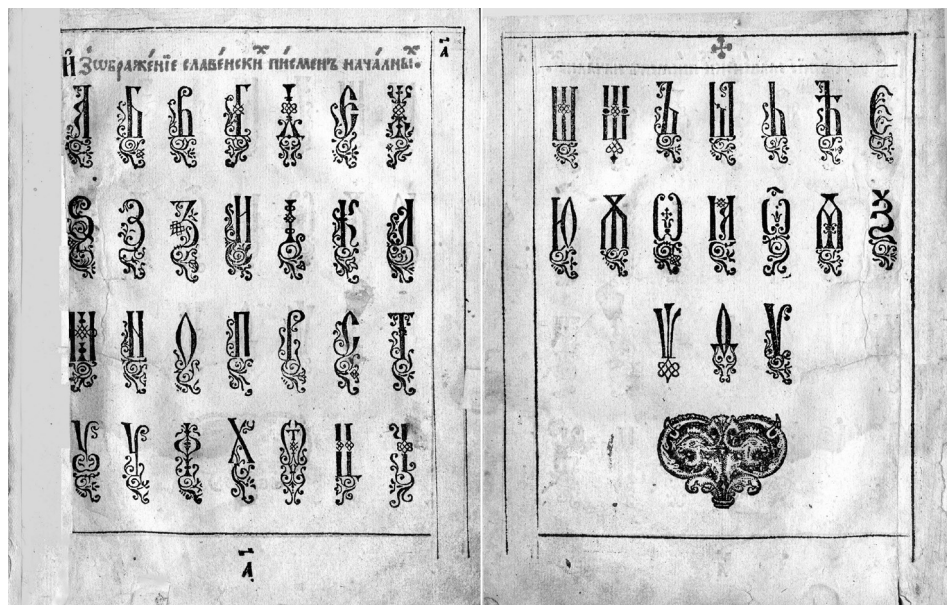 И҆зѡбраже́нїе славе́нскиⷯ пи́сменъ нача́лныⷯ.
А҃
А Б В Г Д Є Ж
Ѕ З Ꙁ И І К Л
М Н О П Р С Т
Ѹ У Ф Х Ѿ Ц Ч
А҃
Ш Щ Ъ Ы Ь Ѣ Є
Ю Ѫ Ѡ Ѽ Ѧ Ѯ
Ѱ Ѳ Ѵ